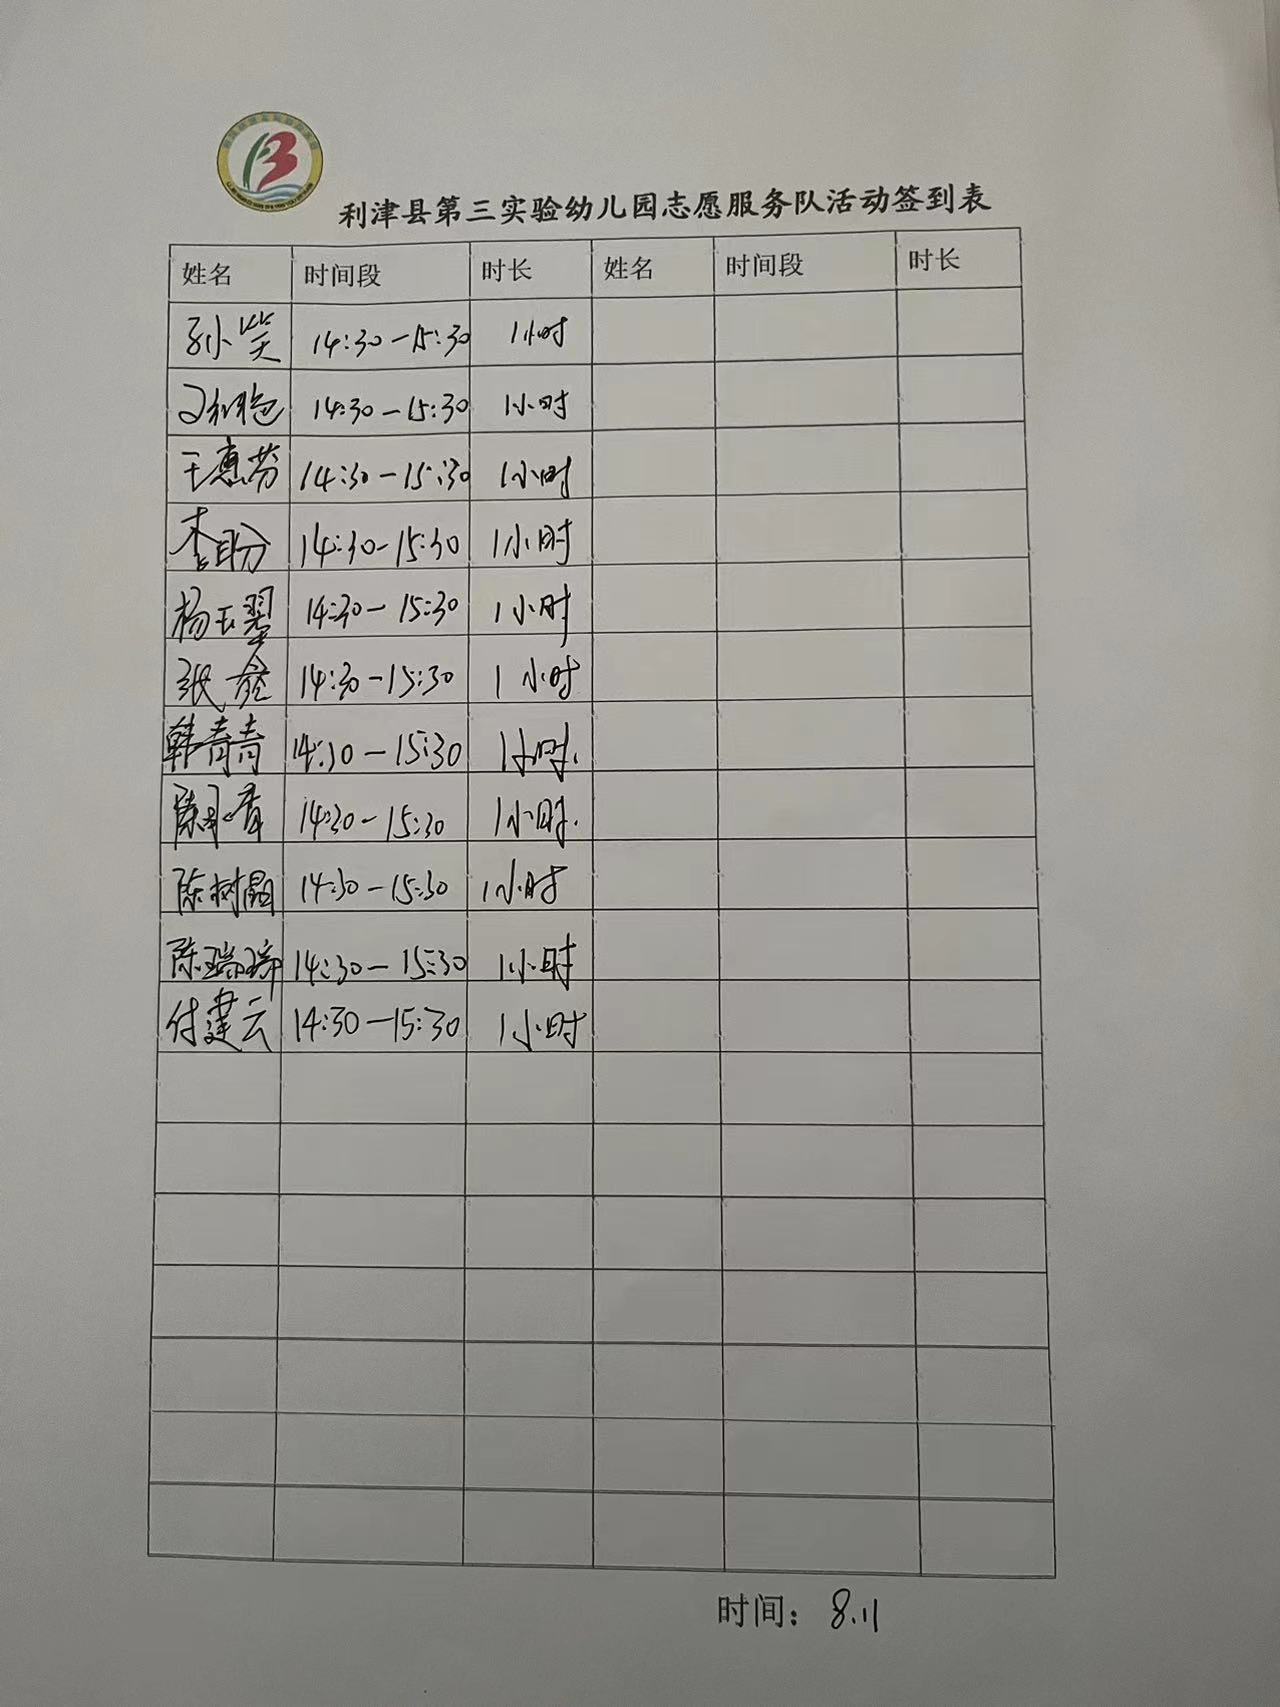 利津县第三实验幼儿园志愿服务队活动签到表
姓名 时间段 时长 姓名 时间段 时长
孙笑 14:30-15:30 1小时
14:30-15:30 1小时
王惠芬 14:30-15:30 1小时
李盼 14:30-15:30 1小时
杨玉翠 14:30-15:30 1小时
张鑫 14:30-15:30 1小时
韩青青 14:30-15:30 1小时.
14:30-15:30 1小时.
陈树晶 14:30-15:30 1小时
陈瑞瑞 14:30-15:30 1小时
付建云 14:30-15:30 1小时
时间：8.11